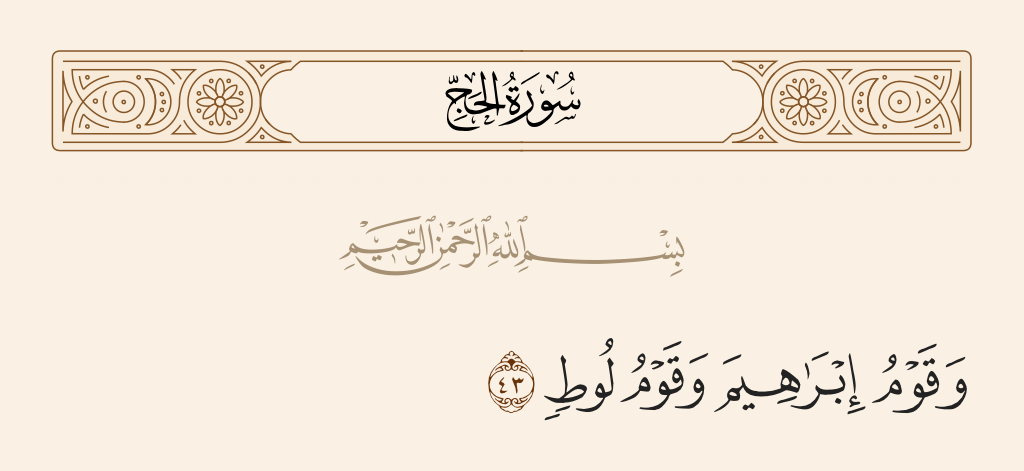 سُورَةُ الحَجِّ
بِسْمِ ٱللَّهِ ٱلرَّحْمَٰنِ ٱلرَّحِيمِ
وَقَوْمُ إِبْرَٰهِيمَ وَقَوْمُ لُوطٍ ٤٣